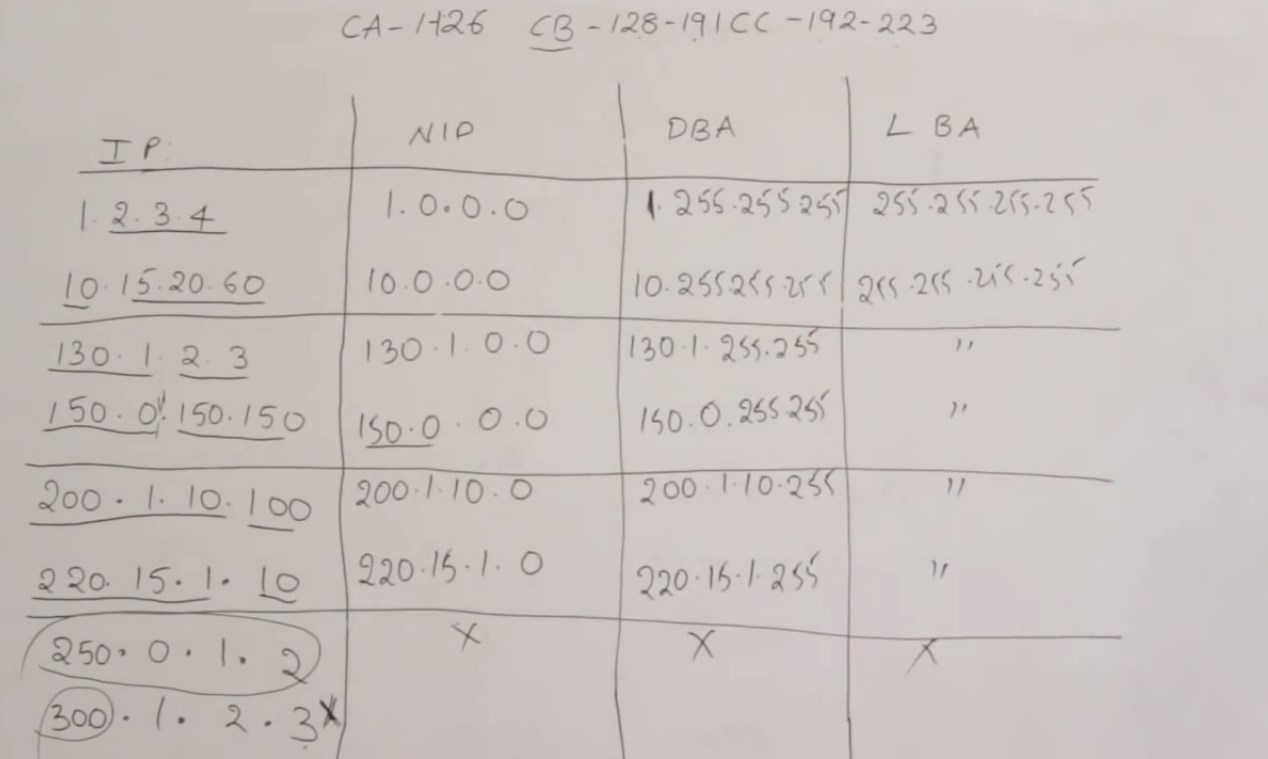 CA-1-126 CB-128-191 CC-192-223
IP: NID DBA LBA
1.2.3.4 1.0.0.0 1.255.255.255 255.255.255.255
10.15.20.60 10.0.0.0 10.255.255.255 255.255.255.255
130.1.2.3 130.1.0.0 130.1.255.255 "
150.0.150.150 150.0.0.0 150.0.255.255 "
200.1.10.100 200.1.10.0 200.1.10.255 "
220.15.1.10 220.15.1.0 220.15.1.255 "
250.0.1.2 X X X
300.1.2.3 X